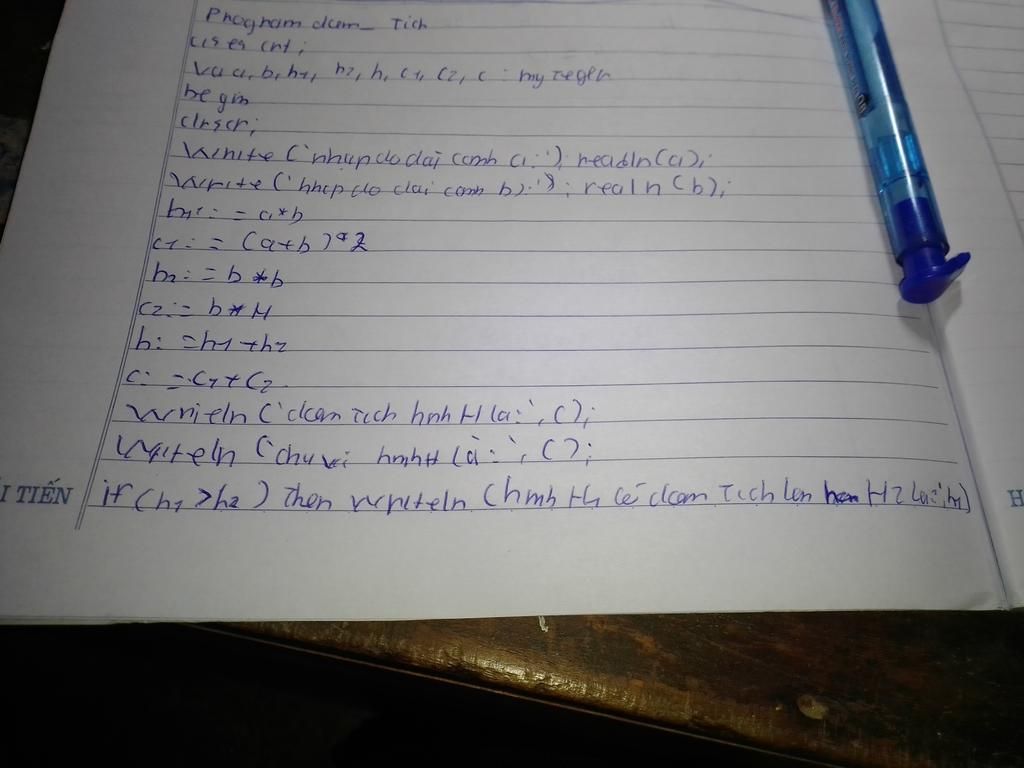 Program dien_Tich
uses crt;
Va a, b, h1, h2, h, c1, c2, c : integer
begin
clrscr;
Write ('nhap do dai canh a:'); readln(a);
Write ('nhap do dai canh b:'); realn (b);
h1: = a*b
c1: = (a+b)*2
h2: = b*b
c2:= b*4
h: =h1+h2
c: =c1+c2
Writeln ('dien tich hinh H la:', c);
Writeln ('chu vi hinhH là:', c);
if (h1 >h2) Then writeln (hinh H1 có dien Tich lon hon H2 la:',h1)
I TIẾN
H